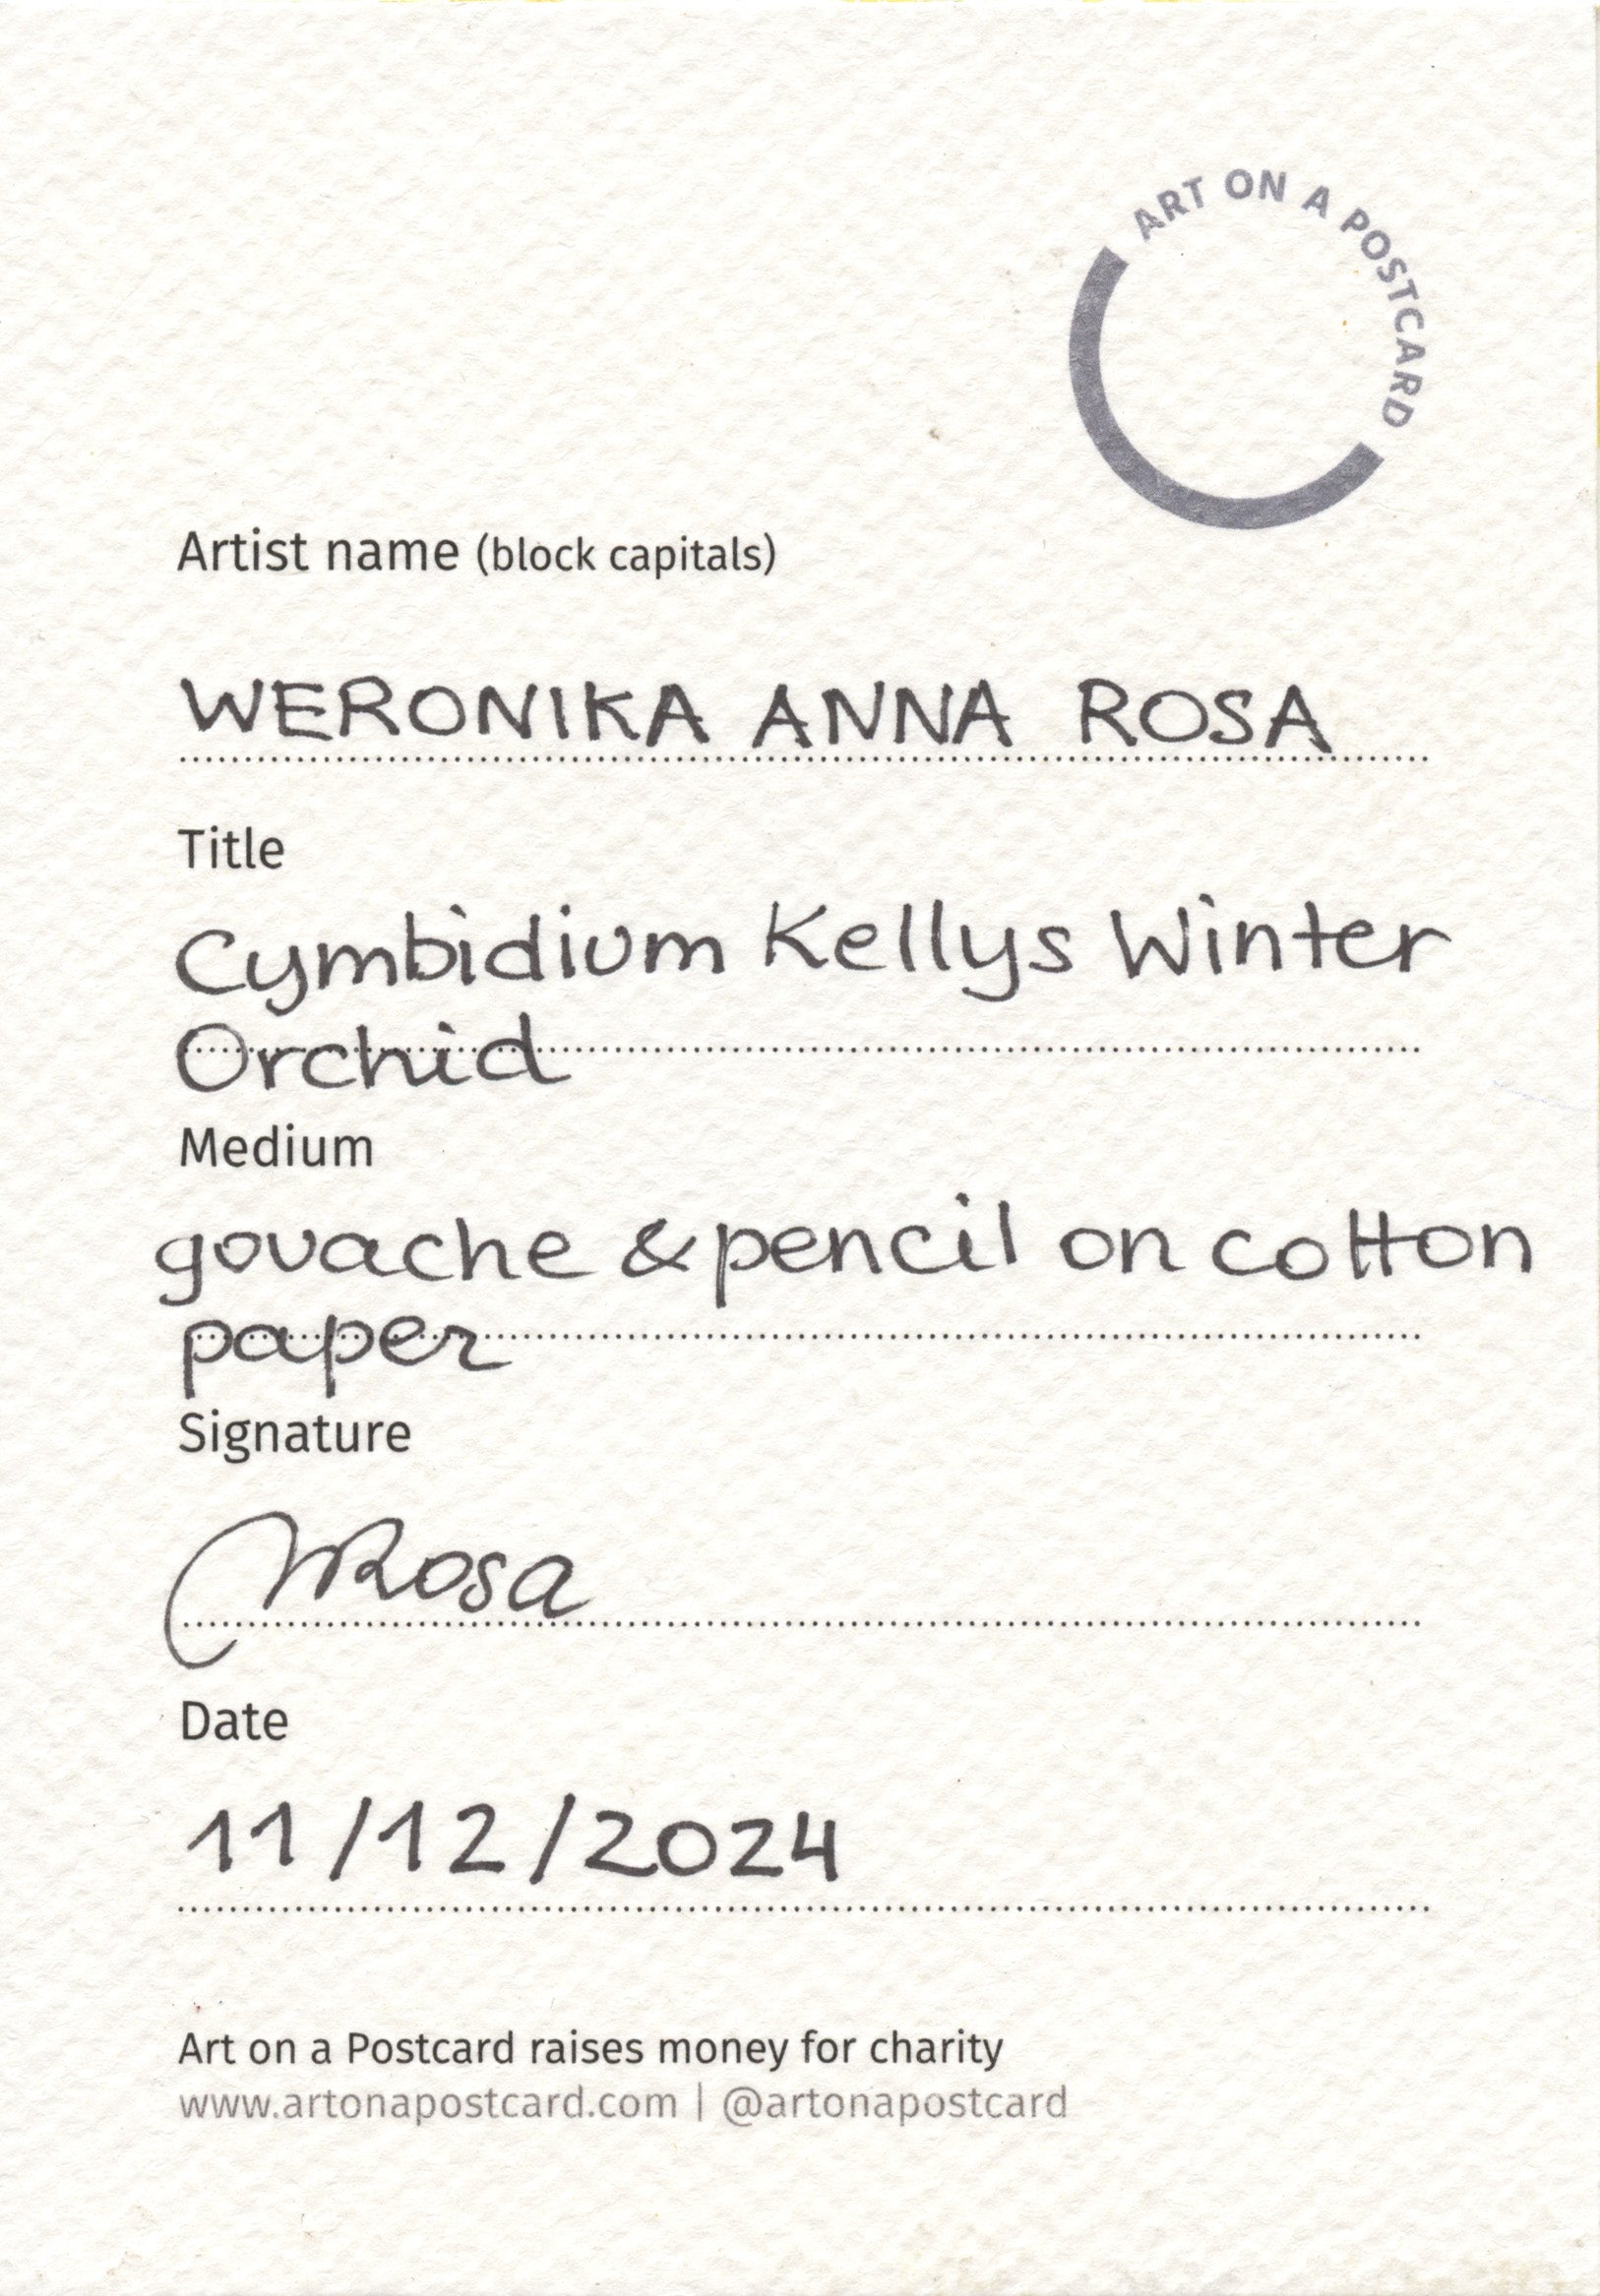 ART ON A POSTCARD
Artist name (block capitals)
WERONIKA ANNA ROSA
Title
Cymbidium Kellys Winter
Orchid
Medium
gouache & pencil on cotton
paper
Signature
WRosa
Date
11/12/2024
Art on a Postcard raises money for charity
www.artonapostcard.com | @artonapostcard